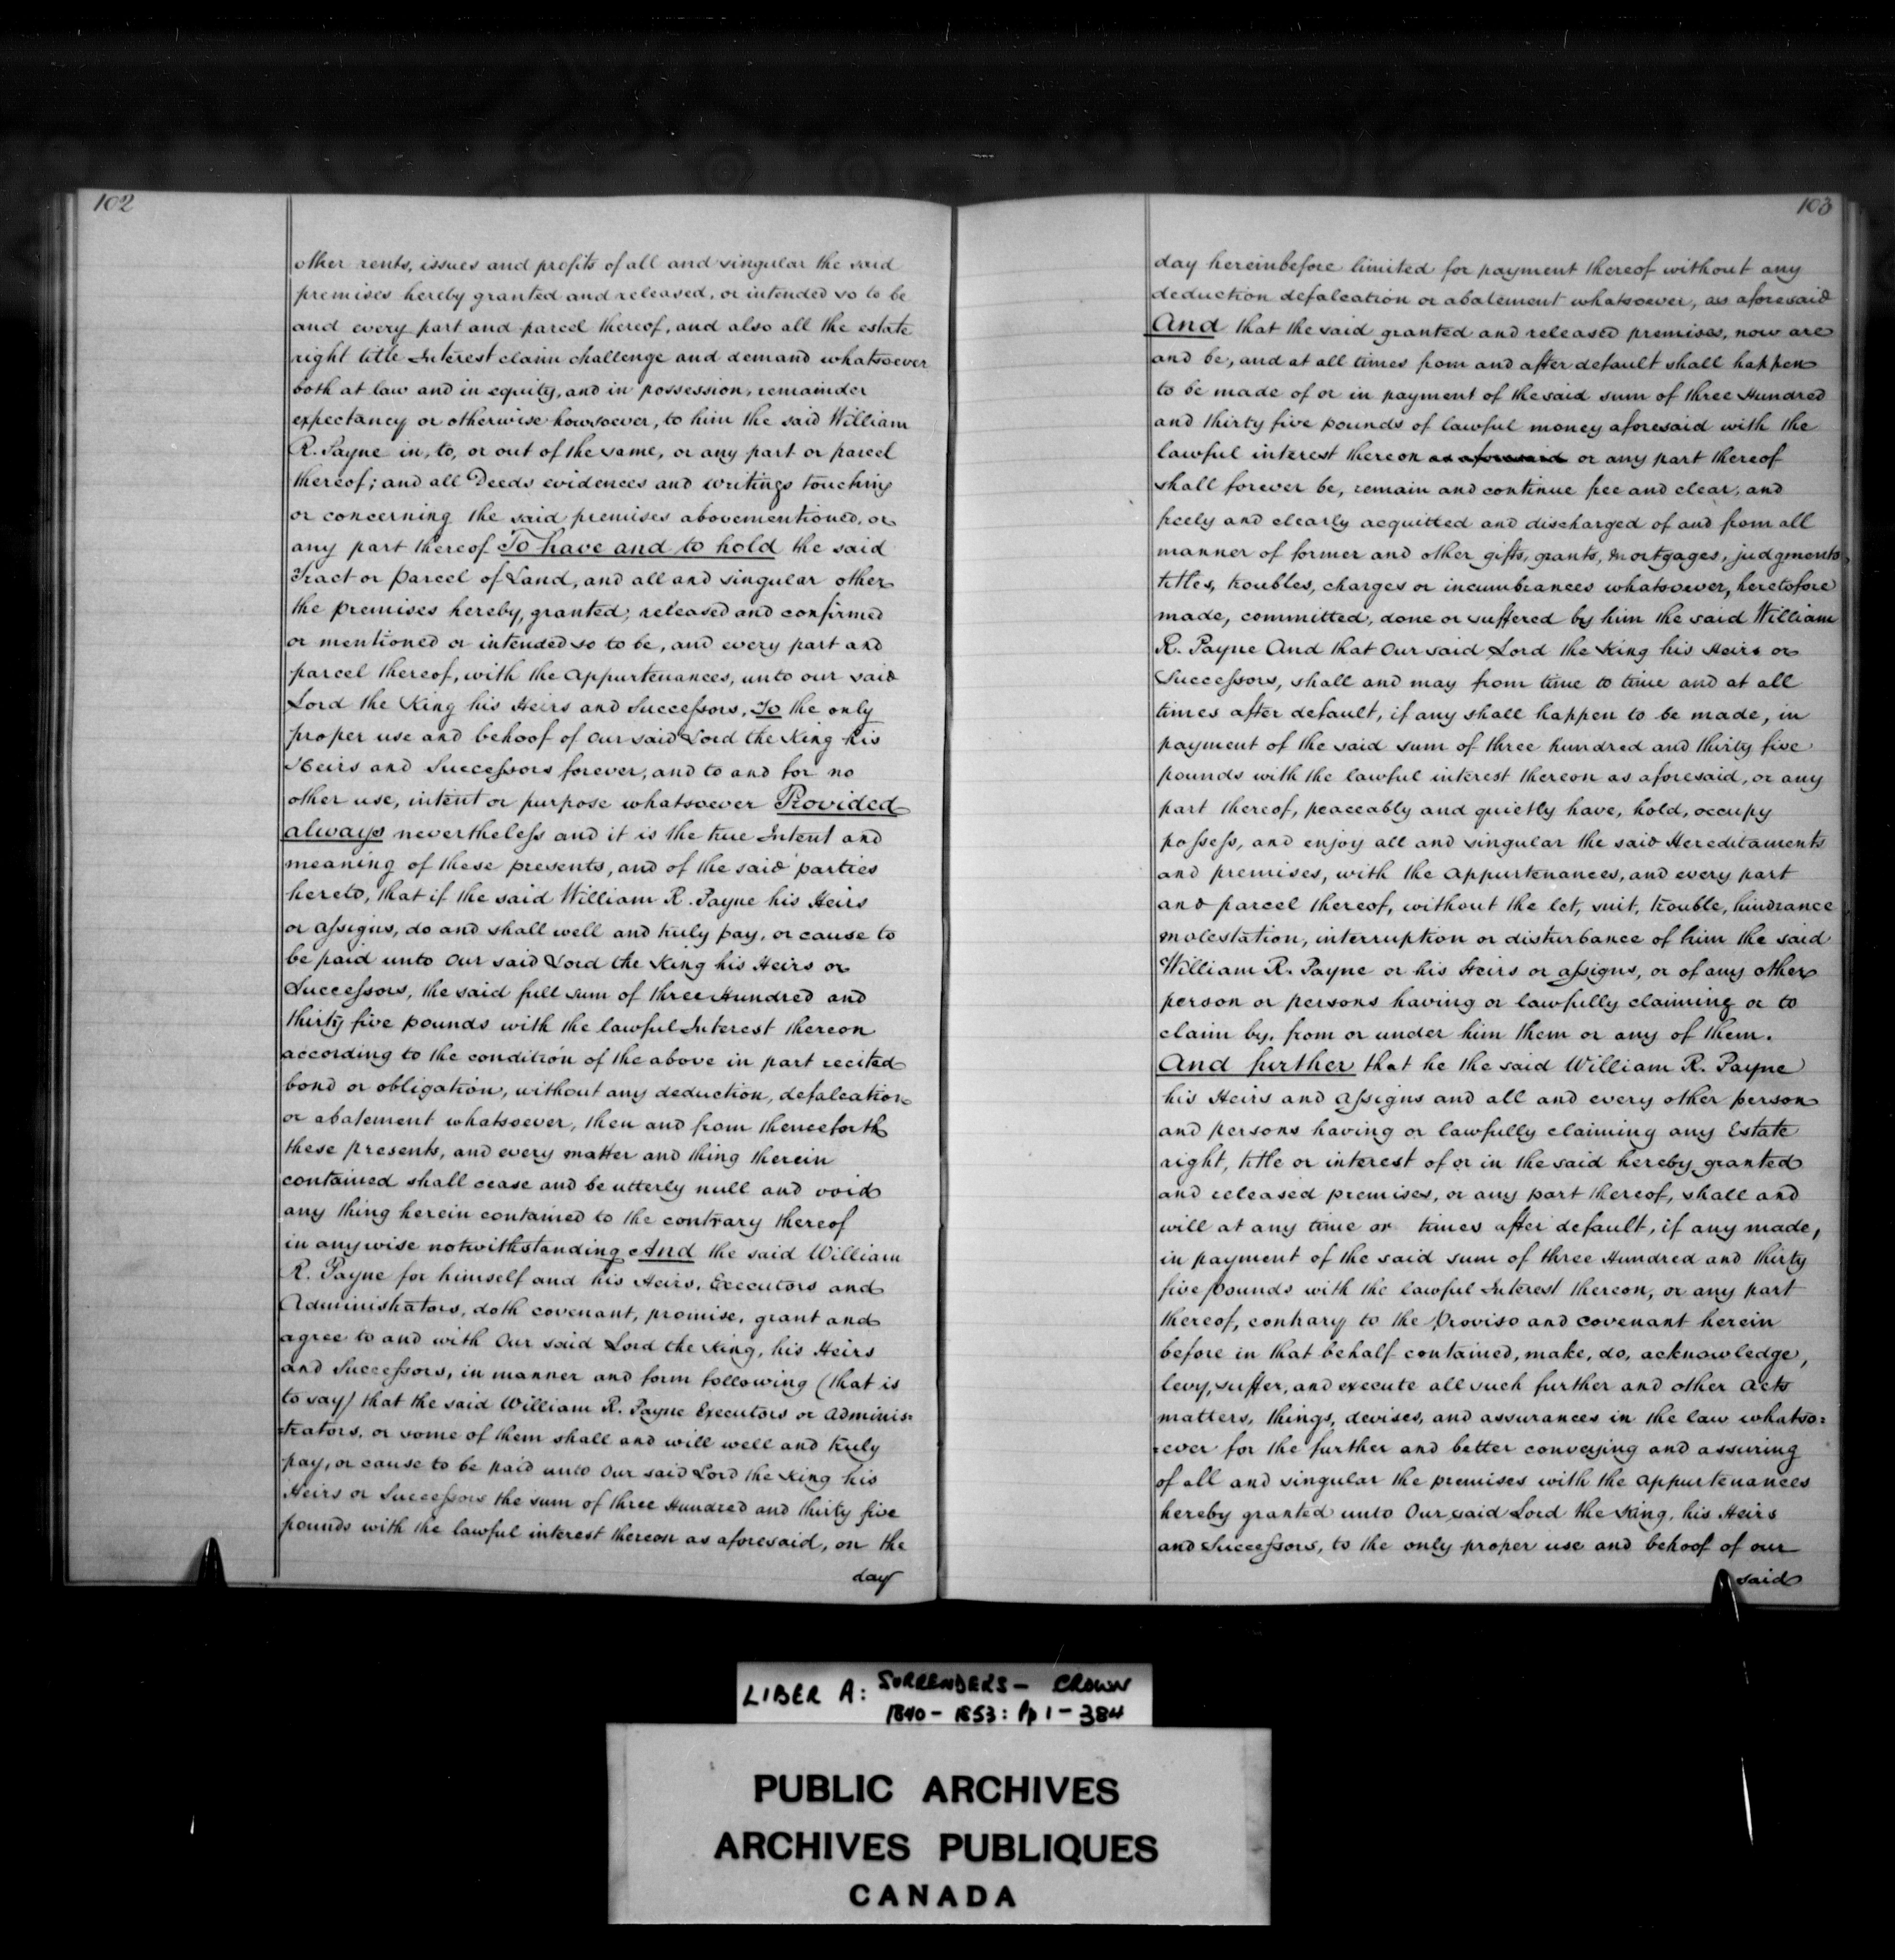 102
other rents, issues and profits of all and singular the said
premises hereby granted and released, or intended so to be
and every part and parcel thereof, and also all the estate
right title Interest claim challenge and demand whatsoever
both at law and in equity, and in possession, remainder
expectancy or otherwise howsoever, to him the said William
R. Payne in, to, or out of the same, or any part or parcel
thereof; and all Deeds evidences and writings touching
or concerning the said premises abovementioned, or
any part thereof To have and to hold the said
Tract or parcel of Land, and all and singular other
the premises hereby, granted, released and confirmed
or mentioned or intended so to be, and every part and
parcel thereof, with the appurtenances, unto our said
Lord the King his Heirs and Successors, To the only
proper use and behoof of our said Lord the King his
Heirs and Successors forever, and to and for no
other use, intent or purpose whatsoever Provided
always nevertheless and it is the true Intent and
meaning of these presents, and of the said parties
hereto, that if the said William R. Payne his Heirs
or assigns, do and shall well and truly pay, or cause to
be paid unto our said Lord the King his Heirs or
Successors, the said full sum of three Hundred and
thirty five pounds with the lawful Interest thereon
according to the condition of the above in part recited
bond or obligation, without any deduction, defalcation
or abatement whatsoever, then and from thenceforth
these presents, and every matter and thing therein
contained shall cease and be utterly null and void
any thing herein contained to the contrary thereof
in anywise notwithstanding And the said William
R. Payne for himself and his Heirs, Executors and
Administrators, doth covenant, promise, grant and
agree to and with Our said Lord the King, his Heirs
and Successors, in manner and form following (that is
to say) that the said William R. Payne Executors or Adminis=
=trators, or some of them shall and will well and truly
pay, or cause to be paid unto our said Lord the King his
Heirs or Successors the sum of three Hundred and thirty five
pounds with the lawful interest thereon as aforesaid, on the
day
103
day hereinbefore limited for payment thereof without any
deduction defalcation or abatement whatsoever, as aforesaid
And that the said granted and released premises, now are
and be, and at all times from and after default shall happen
to be made of or in payment of the said sum of three Hundred
and thirty five pounds of lawful money aforesaid with the
lawful interest thereon as aforesaid or any part thereof
shall forever be, remain and continue free and clear, and
freely and clearly acquitted and discharged of and from all
manner of former and other gifts, grants, mortgages, judgments,
titles, troubles, charges or incumbrances whatsoever, heretofore
made, committed, done or suffered by him the said William
R. Payne And that Our said Lord the King his Heirs or
Successors, shall and may from time to time and at all
times after default, if any shall happen to be made, in
payment of the said sum of three hundred and thirty five
pounds with the lawful interest thereon as aforesaid, or any
part thereof, peaceably and quietly have, hold, occupy
possess, and enjoy all and singular the said Hereditaments
and premises, with the appurtenances, and every part
and parcel thereof, without the let, suit, trouble, hindrance
molestation, interruption or disturbance of him the said
William R. Payne or his Heirs or assigns, or of any other
person or persons having or lawfully claiming or to
claim by, from or under him them or any of them.
And further that he the said William R. Payne
his Heirs and assigns and all and every other person
and persons having or lawfully claiming any Estate
right, title or interest of or in the said hereby granted
and released premises, or any part thereof, shall and
will at any time or times after default, if any made,
in payment of the said sum of three Hundred and thirty
five pounds with the lawful Interest thereon, or any part
thereof, contrary to the Proviso and covenant herein
before in that behalf contained, make, do, acknowledge,
levy, suffer, and execute all such further and other acts
matters, things, devises, and assurances in the law whatso=
=ever for the further and better conveying and assuring
of all and singular the premises with the appurtenances
hereby granted unto Our said Lord the King, his Heirs
and Successors, to the only proper use and behoof of our
said
LIBER A: SURRENDERS - CROWN
1840 - 1853: Pp 1 - 384
PUBLIC ARCHIVES
ARCHIVES PUBLIQUES
CANADA